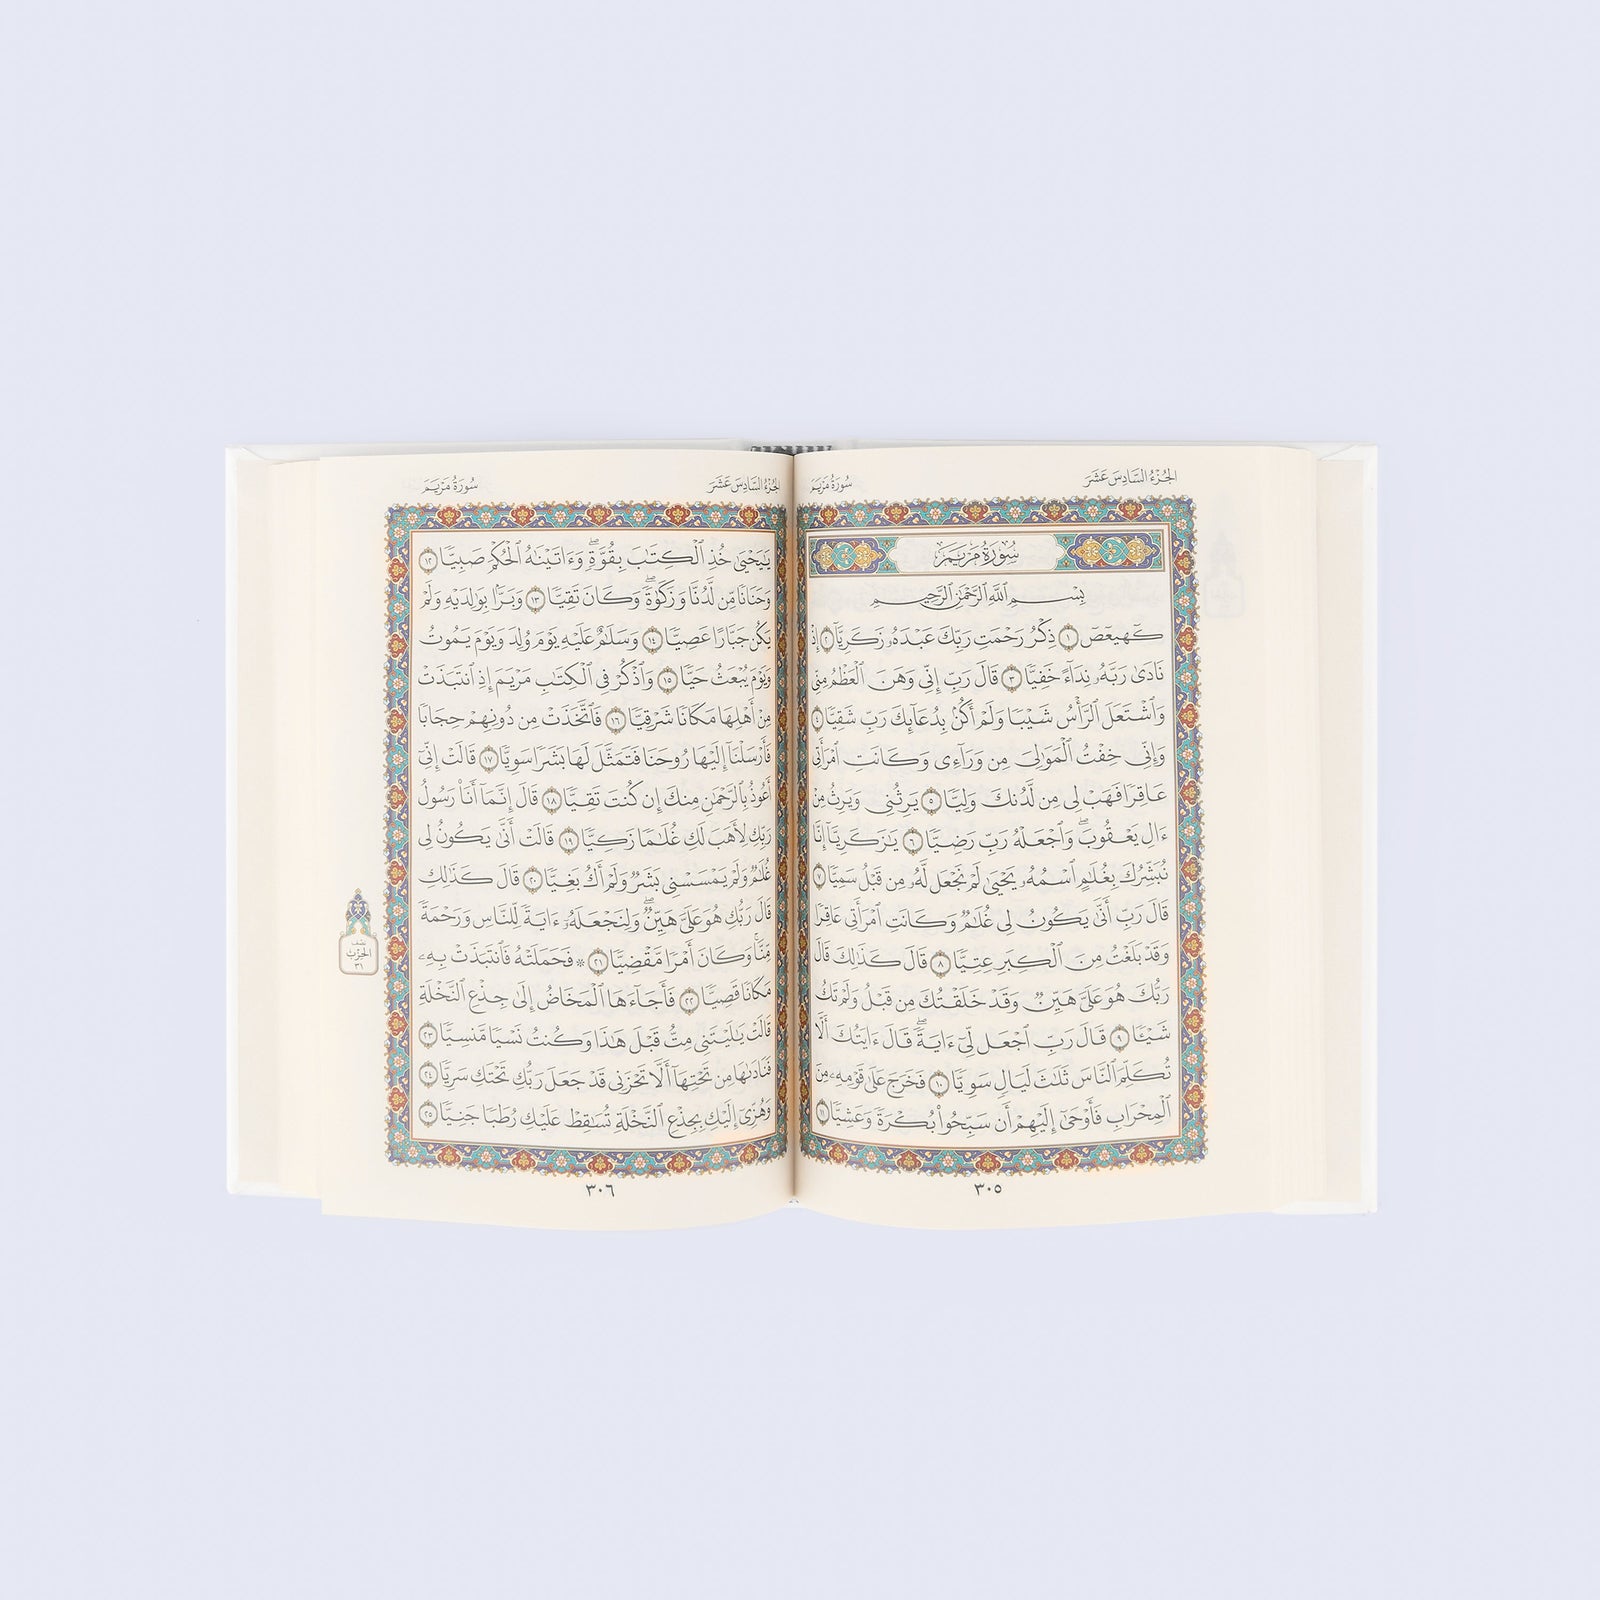 الجُزْءُ السَّادِسَ عَشَرَ
سُورَةُ مَرْيَمَ
سُورَةُ مَرْيَمَ
بِسْمِ ٱللَّهِ ٱلرَّحْمَٰنِ ٱلرَّحِيمِ
كٓهيعٓصٓ ١ ذِكْرُ رَحْمَتِ رَبِّكَ عَبْدَهُۥ زَكَرِيَّآ ٢ إِذْ
نَادَىٰ رَبَّهُۥ نِدَآءً خَفِيًّا ٣ قَالَ رَبِّ إِنِّي وَهَنَ ٱلْعَظْمُ مِنِّي
وَٱشْتَعَلَ ٱلرَّأْسُ شَيْبًا وَلَمْ أَكُنۢ بِدُعَآئِكَ رَبِّ شَقِيًّا ٤
وَإِنِّي خِفْتُ ٱلْمَوَٰلِيَ مِن وَرَآءِي وَكَانَتِ ٱمْرَأَتِي
عَاقِرًا فَهَبْ لِي مِن لَّدُنكَ وَلِيًّا ٥ يَرِثُنِي وَيَرِثُ مِنْ
ءَالِ يَعْقُوبَۖ وَٱجْعَلْهُ رَبِّ رَضِيًّا ٦ يَٰزَكَرِيَّآ إِنَّا
نُبَشِّرُكَ بِغُلَٰمٍ ٱسْمُهُۥ يَحْيَىٰ لَمْ نَجْعَل لَّهُۥ مِن قَبْلُ سَمِيًّا ٧
قَالَ رَبِّ أَنَّىٰ يَكُونُ لِي غُلَٰمٌ وَكَانَتِ ٱمْرَأَتِي عَاقِرًا
وَقَدْ بَلَغْتُ مِنَ ٱلْكِبَرِ عِتِيًّا ٨ قَالَ كَذَٰلِكَ قَالَ
رَبُّكَ هُوَ عَلَيَّ هَيِّنٌ وَقَدْ خَلَقْتُكَ مِن قَبْلُ وَلَمْ تَكُ
شَيْـًٔا ٩ قَالَ رَبِّ ٱجْعَل لِّيٓ ءَايَةًۖ قَالَ ءَايَتُكَ أَلَّا
تُكَلِّمَ ٱلنَّاسَ ثَلَٰثَ لَيَالٍ سَوِيًّا ١٠ فَخَرَجَ عَلَىٰ قَوْمِهِۦ مِنَ
ٱلْمِحْرَابِ فَأَوْحَىٰٓ إِلَيْهِمْ أَن سَبِّحُوا۟ بُكْرَةً وَعَشِيًّا ١١
٣٠٥
الجُزْءُ السَّادِسَ عَشَرَ
سُورَةُ مَرْيَمَ
يَٰيَحْيَىٰ خُذِ ٱلْكِتَٰبَ بِقُوَّةٍۖ وَءَاتَيْنَٰهُ ٱلْحُكْمَ صَبِيًّا ١٢
وَحَنَانًا مِّن لَّدُنَّا وَزَكَوٰةًۖ وَكَانَ تَقِيًّا ١٣ وَبَرًّۢا بِوَٰلِدَيْهِ وَلَمْ
يَكُن جَبَّارًا عَصِيًّا ١٤ وَسَلَٰمٌ عَلَيْهِ يَوْمَ وُلِدَ وَيَوْمَ يَمُوتُ
وَيَوْمَ يُبْعَثُ حَيًّا ١٥ وَٱذْكُرْ فِي ٱلْكِتَٰبِ مَرْيَمَ إِذِ ٱنتَبَذَتْ
مِنْ أَهْلِهَا مَكَانًا شَرْقِيًّا ١٦ فَٱتَّخَذَتْ مِن دُونِهِمْ حِجَابًا
فَأَرْسَلْنَآ إِلَيْهَا رُوحَنَا فَتَمَثَّلَ لَهَا بَشَرًا سَوِيًّا ١٧ قَالَتْ إِنِّيٓ
أَعُوذُ بِٱلرَّحْمَٰنِ مِنكَ إِن كُنتَ تَقِيًّا ١٨ قَالَ إِنَّمَآ أَنَا۠ رَسُولُ
رَبِّكِ لِأَهَبَ لَكِ غُلَٰمًا زَكِيًّا ١٩ قَالَتْ أَنَّىٰ يَكُونُ لِي
غُلَٰمٌ وَلَمْ يَمْسَسْنِي بَشَرٌ وَلَمْ أَكُ بَغِيًّا ٢٠ قَالَ كَذَٰلِكِ
قَالَ رَبُّكِ هُوَ عَلَيَّ هَيِّنٌۖ وَلِنَجْعَلَهُۥٓ ءَايَةً لِّلنَّاسِ وَرَحْمَةً
مِّنَّاۚ وَكَانَ أَمْرًا مَّقْضِيًّا ٢١ ۞ فَحَمَلَتْهُ فَٱنتَبَذَتْ بِهِۦ
مَكَانًا قَصِيًّا ٢٢ فَأَجَآءَهَا ٱلْمَخَاضُ إِلَىٰ جِذْعِ ٱلنَّخْلَةِ
قَالَتْ يَٰلَيْتَنِي مِتُّ قَبْلَ هَٰذَا وَكُنتُ نَسْيًا مَّنسِيًّا ٢٣
فَنَادَىٰهَا مِن تَحْتِهَآ أَلَّا تَحْزَنِي قَدْ جَعَلَ رَبُّكِ تَحْتَكِ سَرِيًّا ٢٤
وَهُزِّيٓ إِلَيْكِ بِجِذْعِ ٱلنَّخْلَةِ تُسَٰقِطْ عَلَيْكِ رُطَبًا جَنِيًّا ٢٥
نصف
الحزب
٣١
٣٠٦